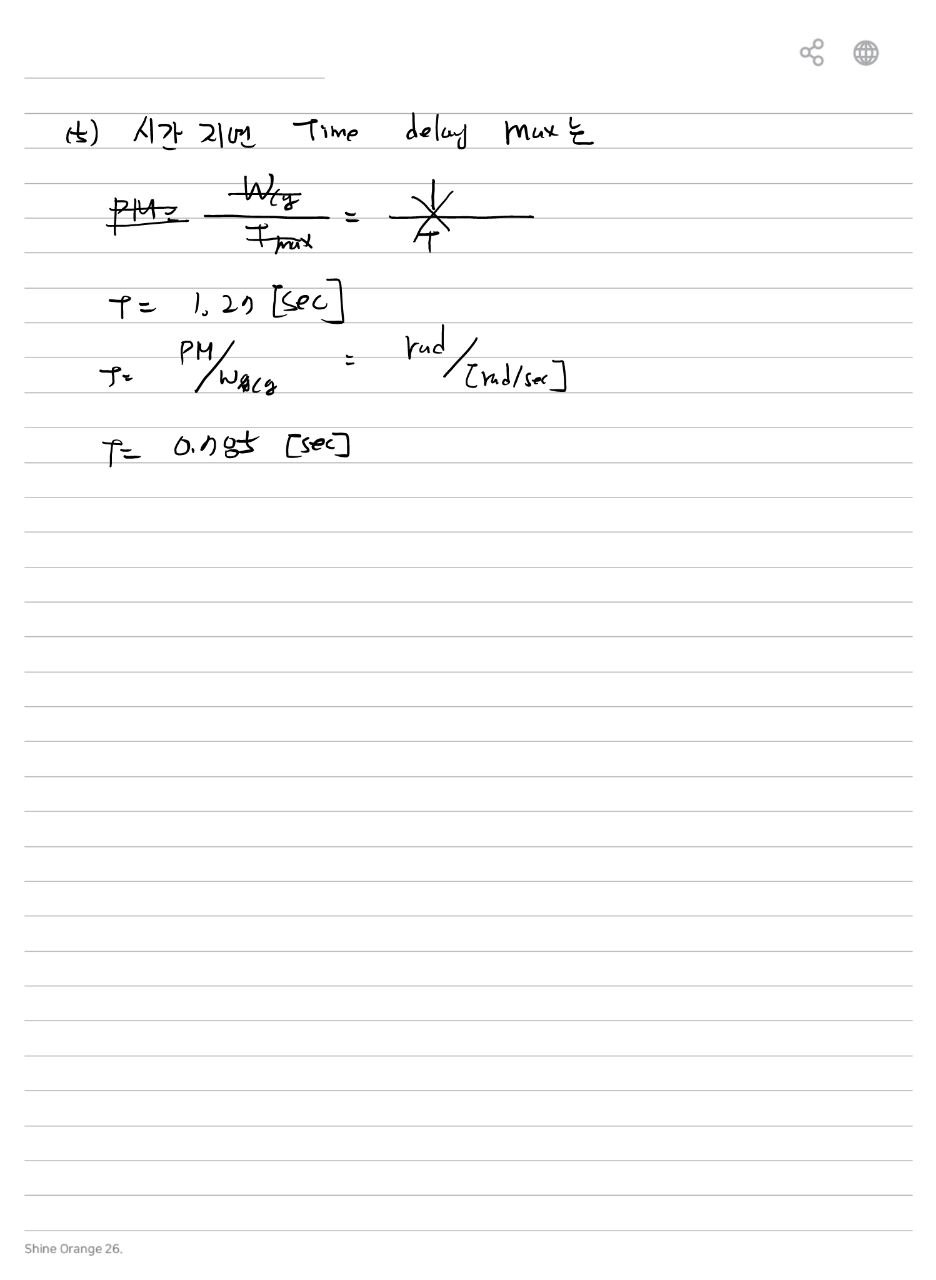 (5) 시간 지연 Time delay max는
PM= Wcg / Tmax = 1 / T
T= 1.27 [sec]
T= PM/Wcg = rad/[rad/sec]
T= 0.785 [sec]
Shine Orange 26.